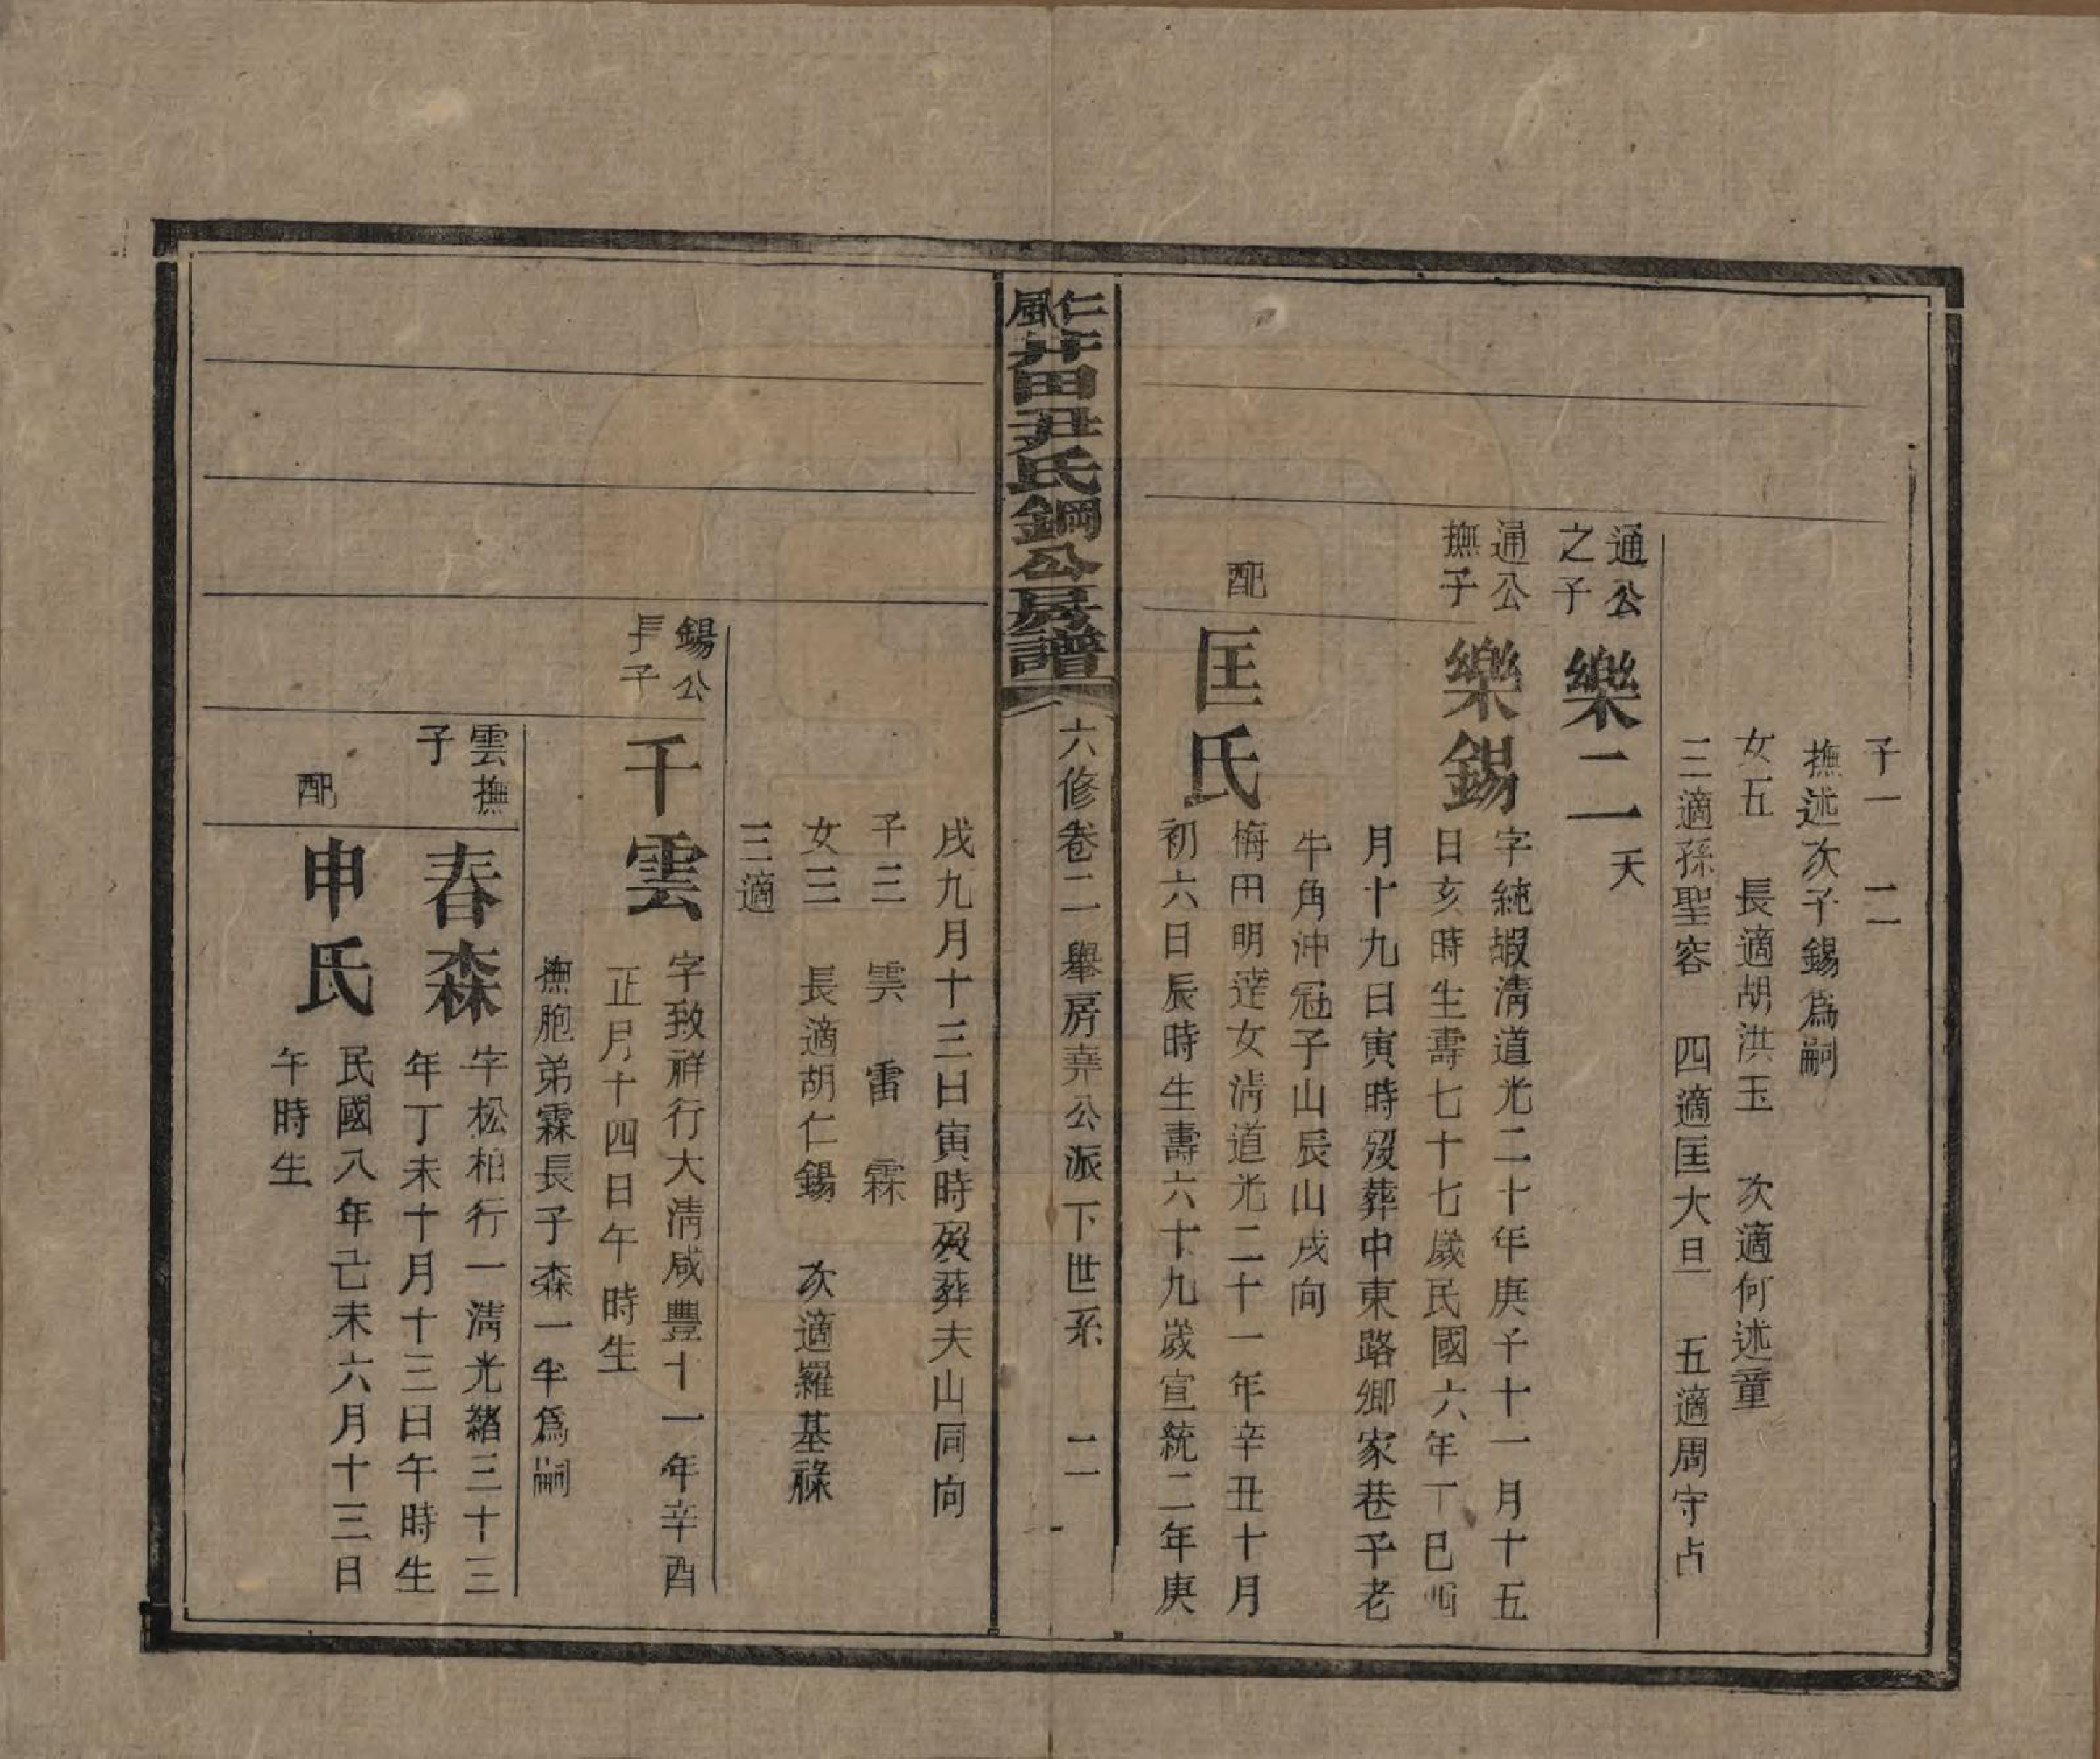 子一　二
撫述次子錫爲嗣
女五　長適胡洪玉　次適何述童
三適孫聖容　四適匡大旦　五適周守占
通公之子
樂二一 夭
通公撫子
樂錫
字純嘏淸道光二十年庚子十一月十五
日亥時生壽七十七歲民國六年丁巳
月十九日寅時歿葬中東路鄉家巷子老
牛角沖冠子山辰山戌向
配
匡氏
梅田明達女淸道光二十一年辛丑十月
初六日辰時生壽六十九歲宣統二年庚
仁風
井田尹氏鋼公房譜
六修卷二 舉房堯公派下世系　二一
戌九月十三日寅時歿葬夫山同向
子三　雲　雷　霖
女三　長適胡仁錫　次適羅基祿
三適
錫公長子
千雲
字致祥行大淸咸豐十一年辛酉
正月十四日午時生
撫胞弟霖長子森一半爲嗣
雲撫子
春森
字松柏行一淸光緖三十三
年丁未十月十三日午時生
配
申氏
民國八年己未六月十三日
午時生